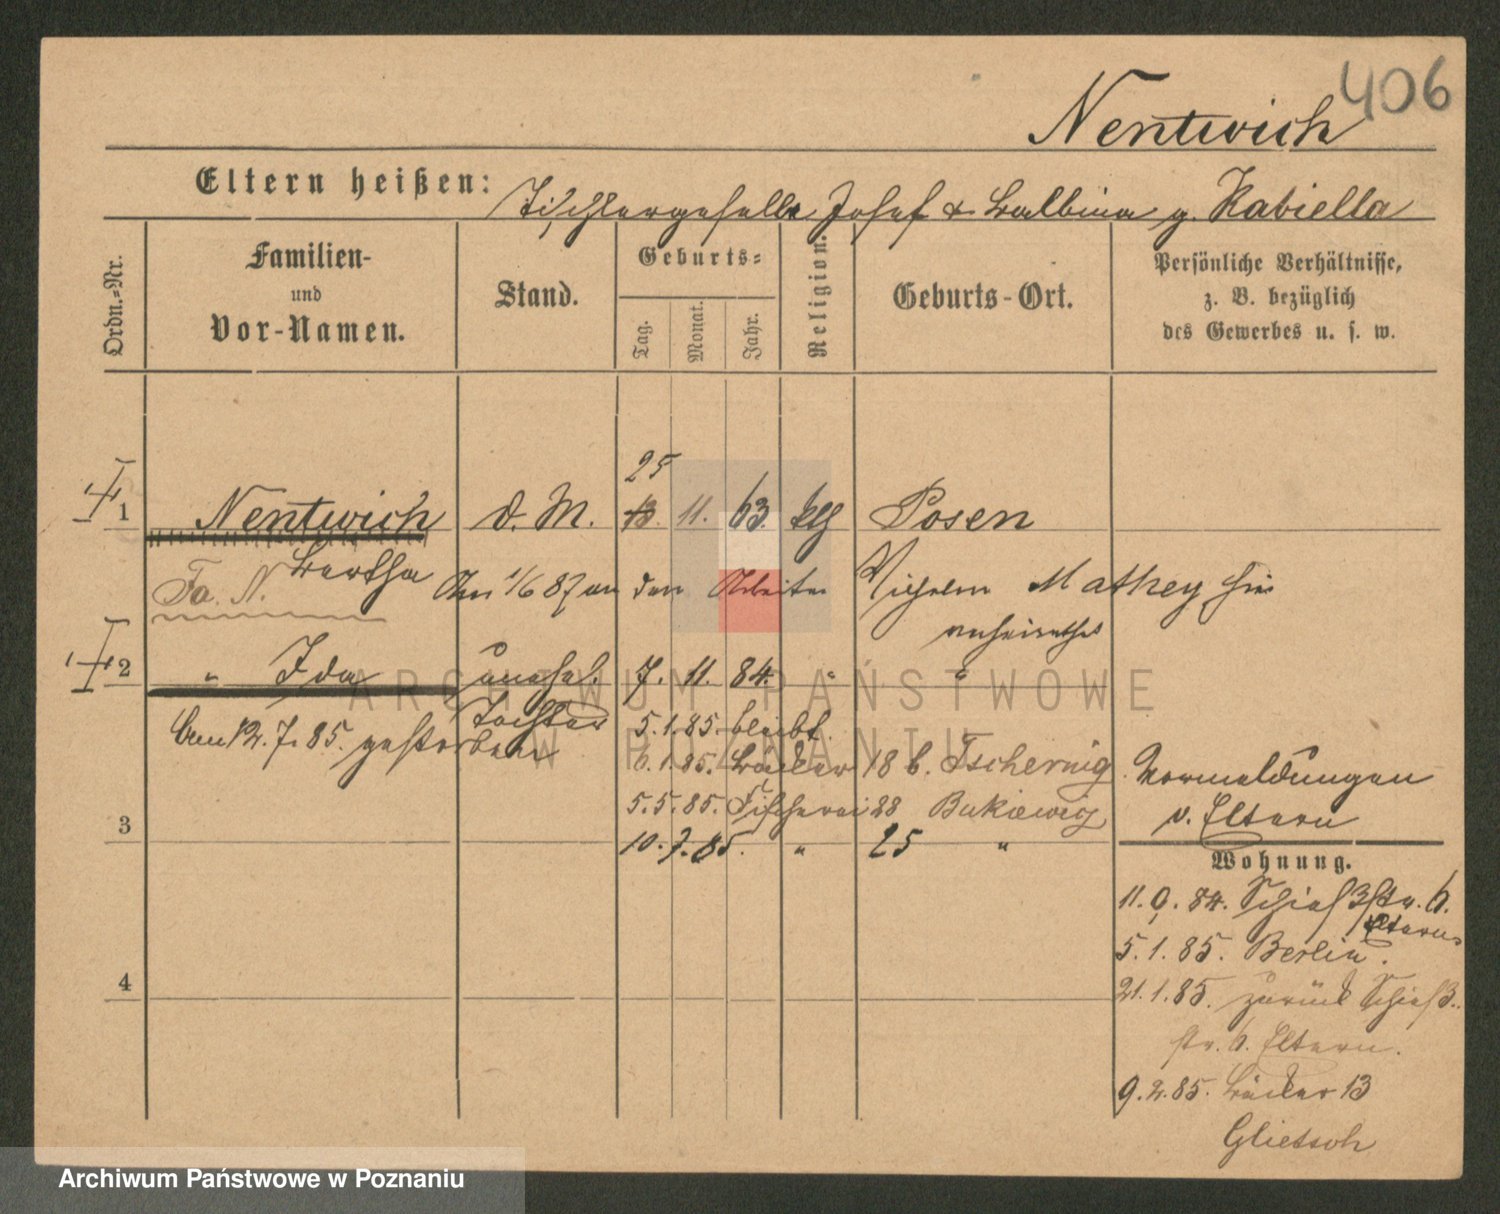 406
Nentwich
Eltern heißen: Tischlergeselle Josef & Balbina g. Kabiella
Ordn.-Nr.
Familien- und Vor-Namen.
Stand.
Geburts-
Tag.
Monat.
Jahr.
Religion.
Geburts-Ort.
Persönliche Verhältnisse,
z. B. bezüglich
des Gewerbes u. s. w.
25
1 Nentwich d. M. 13. 11. 63. Posen
Bertha
Fa. N. 1/6 87 an den Arbeiter Wilhelm Mathey hier
verheirathet
2 " Ida unehel. 7. 11. 84. " "
Tochter
Am 12. 7. 85. gestorben
5. 1. 85. bleibt.
6. 1. 85. Bäcker 18 b. Tschernig
5. 5. 85. Fischerei 28 Bukiewicz
10. 7. 85. " 25 "
Vermeldungen
v. Eltern
3
4
Wohnung.
11. 9. 84. Schießstr. 6.
Eltern
5. 1. 85. Berlin.
21. 1. 85. zurück Schieß-
str. 6. Eltern.
9. 2. 85. Bäcker 13
Glietsch
ARCHIWUM PAŃSTWOWE
W POZNANIU
Archiwum Państwowe w Poznaniu